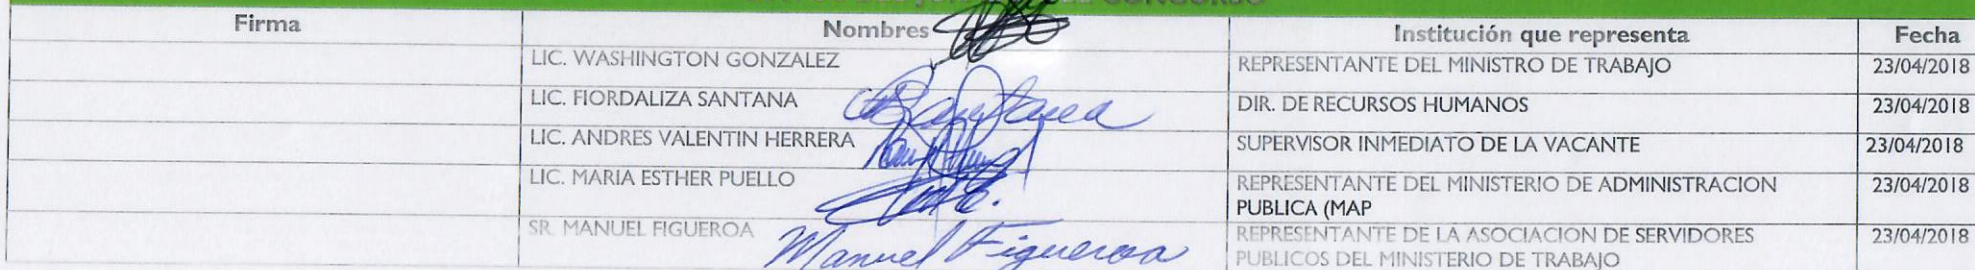 Firma Nombres Institución que representa Fecha
LIC. WASHINGTON GONZALEZ REPRESENTANTE DEL MINISTRO DE TRABAJO 23/04/2018
LIC. FIORDALIZA SANTANA Santana DIR. DE RECURSOS HUMANOS 23/04/2018
LIC. ANDRES VALENTIN HERRERA SUPERVISOR INMEDIATO DE LA VACANTE 23/04/2018
LIC. MARIA ESTHER PUELLO REPRESENTANTE DEL MINISTERIO DE ADMINISTRACION 23/04/2018
PUBLICA (MAP
SR. MANUEL FIGUEROA Manuel Figueroa REPRESENTANTE DE LA ASOCIACION DE SERVIDORES 23/04/2018
PUBLICOS DEL MINISTERIO DE TRABAJO